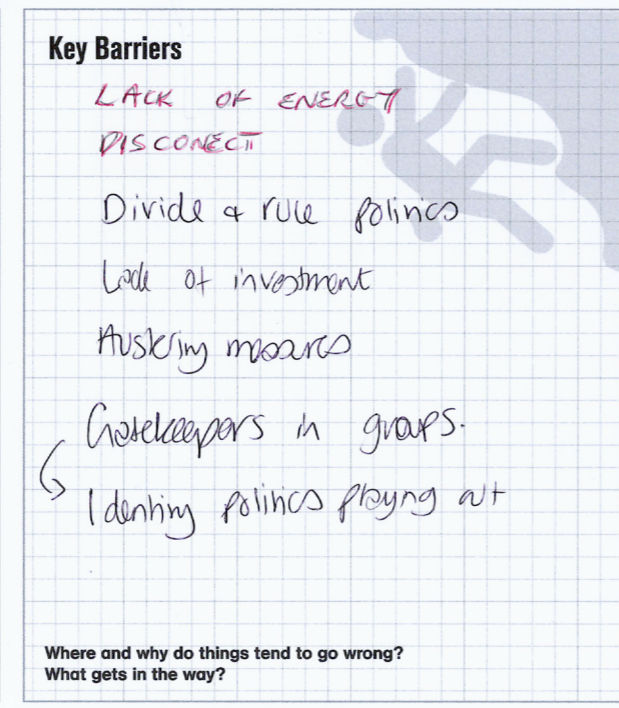 Key Barriers
LACK OF ENERGY
DISCONECT
Divide & rule politics
Lack of investment
Austerity measures
Gatekeepers in groups.
Identity politics playing out
Where and why do things tend to go wrong?
What gets in the way?